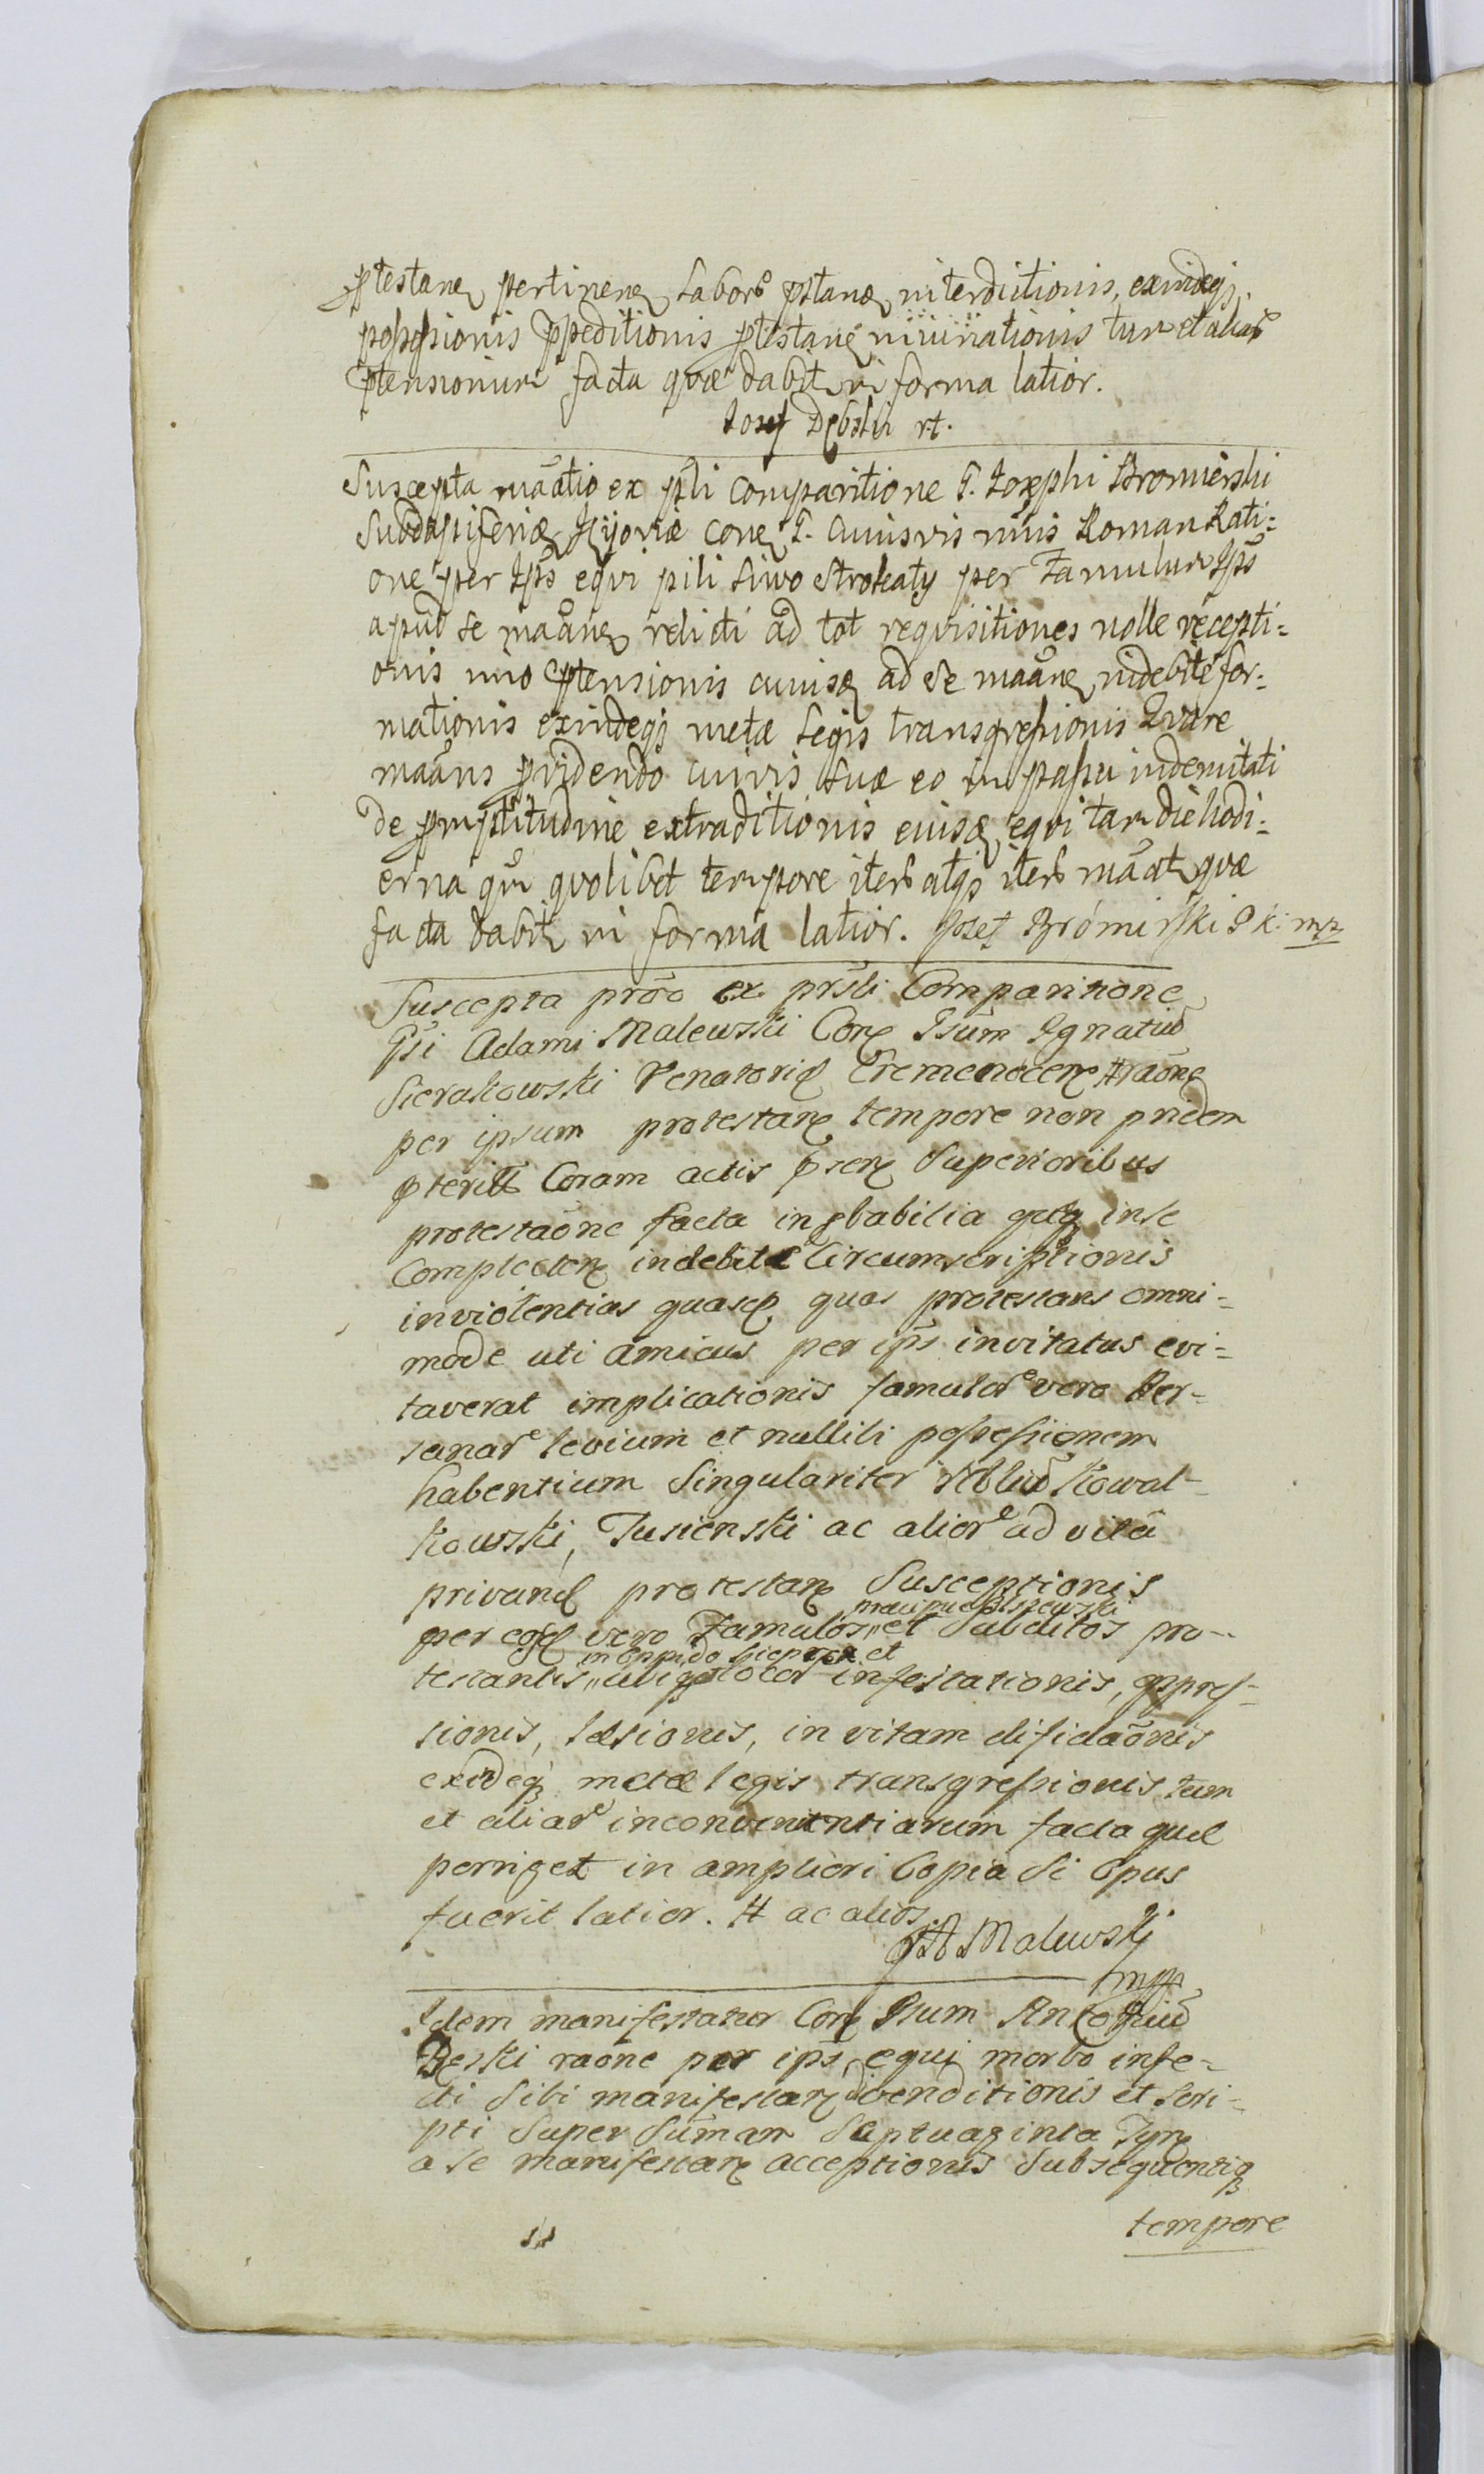 ptestane pertinene Labore pstane interdictionis, exindeqз
possessionis ppeditionis ptestane tum et aliar
ptensionum facta quæ dabit in forma latior.
Josef Dębski rt.
Suscepta maatio ex psli comparitione G. Josephi Bromierski
Subdapiferiæ Kijoviæ cone G. Roman Rati=
one per Ips eqvi pili siwo strokaty per Famulum Ips
apud se maane relicti ad tot reqvisitiones nolle recepti=
onis imo ptensionis cuiusq ad se maane indebite for=
mationis exindeqз metæ Legis transgressionis Qvare
maans pvidendo suæ eo in passu indemnitati
de promptitudine extraditionis eiusq eqvi tam die hodi=
erna qm qvolibet tempore iter atqз iter maat qvæ
facta dabit in forma latior. Josef Brómirski P k: mp
Suscepta prõ ex prsli Comparitione
Gsi Adami Malewski Cone Gsum Ignatiū
Sierakowski Venatorid Cremenecene # raōne
per ipsum protestane tempore non pridem
pterito Coram actis psene Superioribus
protestaōne facta inpbabilia in se
Complectene indebitæ Circumscriptionis
inviolentias quasq quas protestans omni=
mode uti amicus per ips invitatus evi=
taverat implicationis famulor vero Per=
sonar levium et nullibi possessionem
habentium Singulariter Nbliū Kowal=
kowski, Jusienski ac alior ad vitā
privand protestane Susceptionis
per eosd vero Famulos „ et Subditos pro=
testantis „ in oppido et infestationis, oppres=
sionis, læsionis, in vitam difidaōnis
exindeqз metæ legis transgressionis tum
et aliar inconvenientiarum facta quæ
porriget in ampliori Copia Si Opus
fuerit latior. # ac alios
A Malewski
mpp
Idem manifestatur Cone Gsum Antoniū
Beski raōne per ips equi morbo infe=
cti Sibi manifestane divenditionis et Scri=
pti Super Sumam Septuaginta Tyn
a Se manifestane acceptionis Subsequentiq
tempore